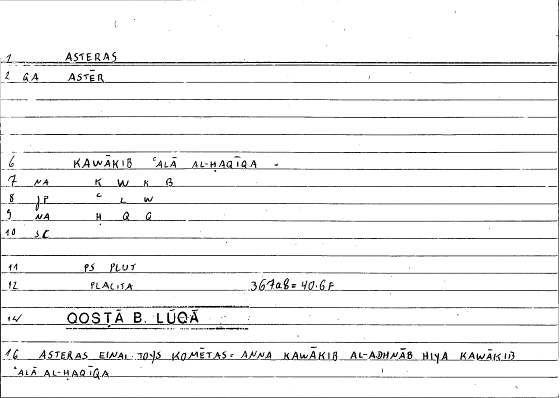 1 ASTERAS
2 QA ASTĒR
6 KAWĀKIB ʿALĀ AL-ḤAQĪQA -
7 NA K W K B
8 JP ʿ L W
9 NA Ḥ Q Q
10 SC
11 PS PLUT
12 PLACITA 367a8 = 40.6F
14 QOSṬĀ B. LŪQĀ
16 ASTERAS EINAI TOYS KOMĒTAS = ANNA KAWĀKIB AL-ADHNĀB HIYA KAWĀKIB
ʿALĀ AL-ḤAQĪQA